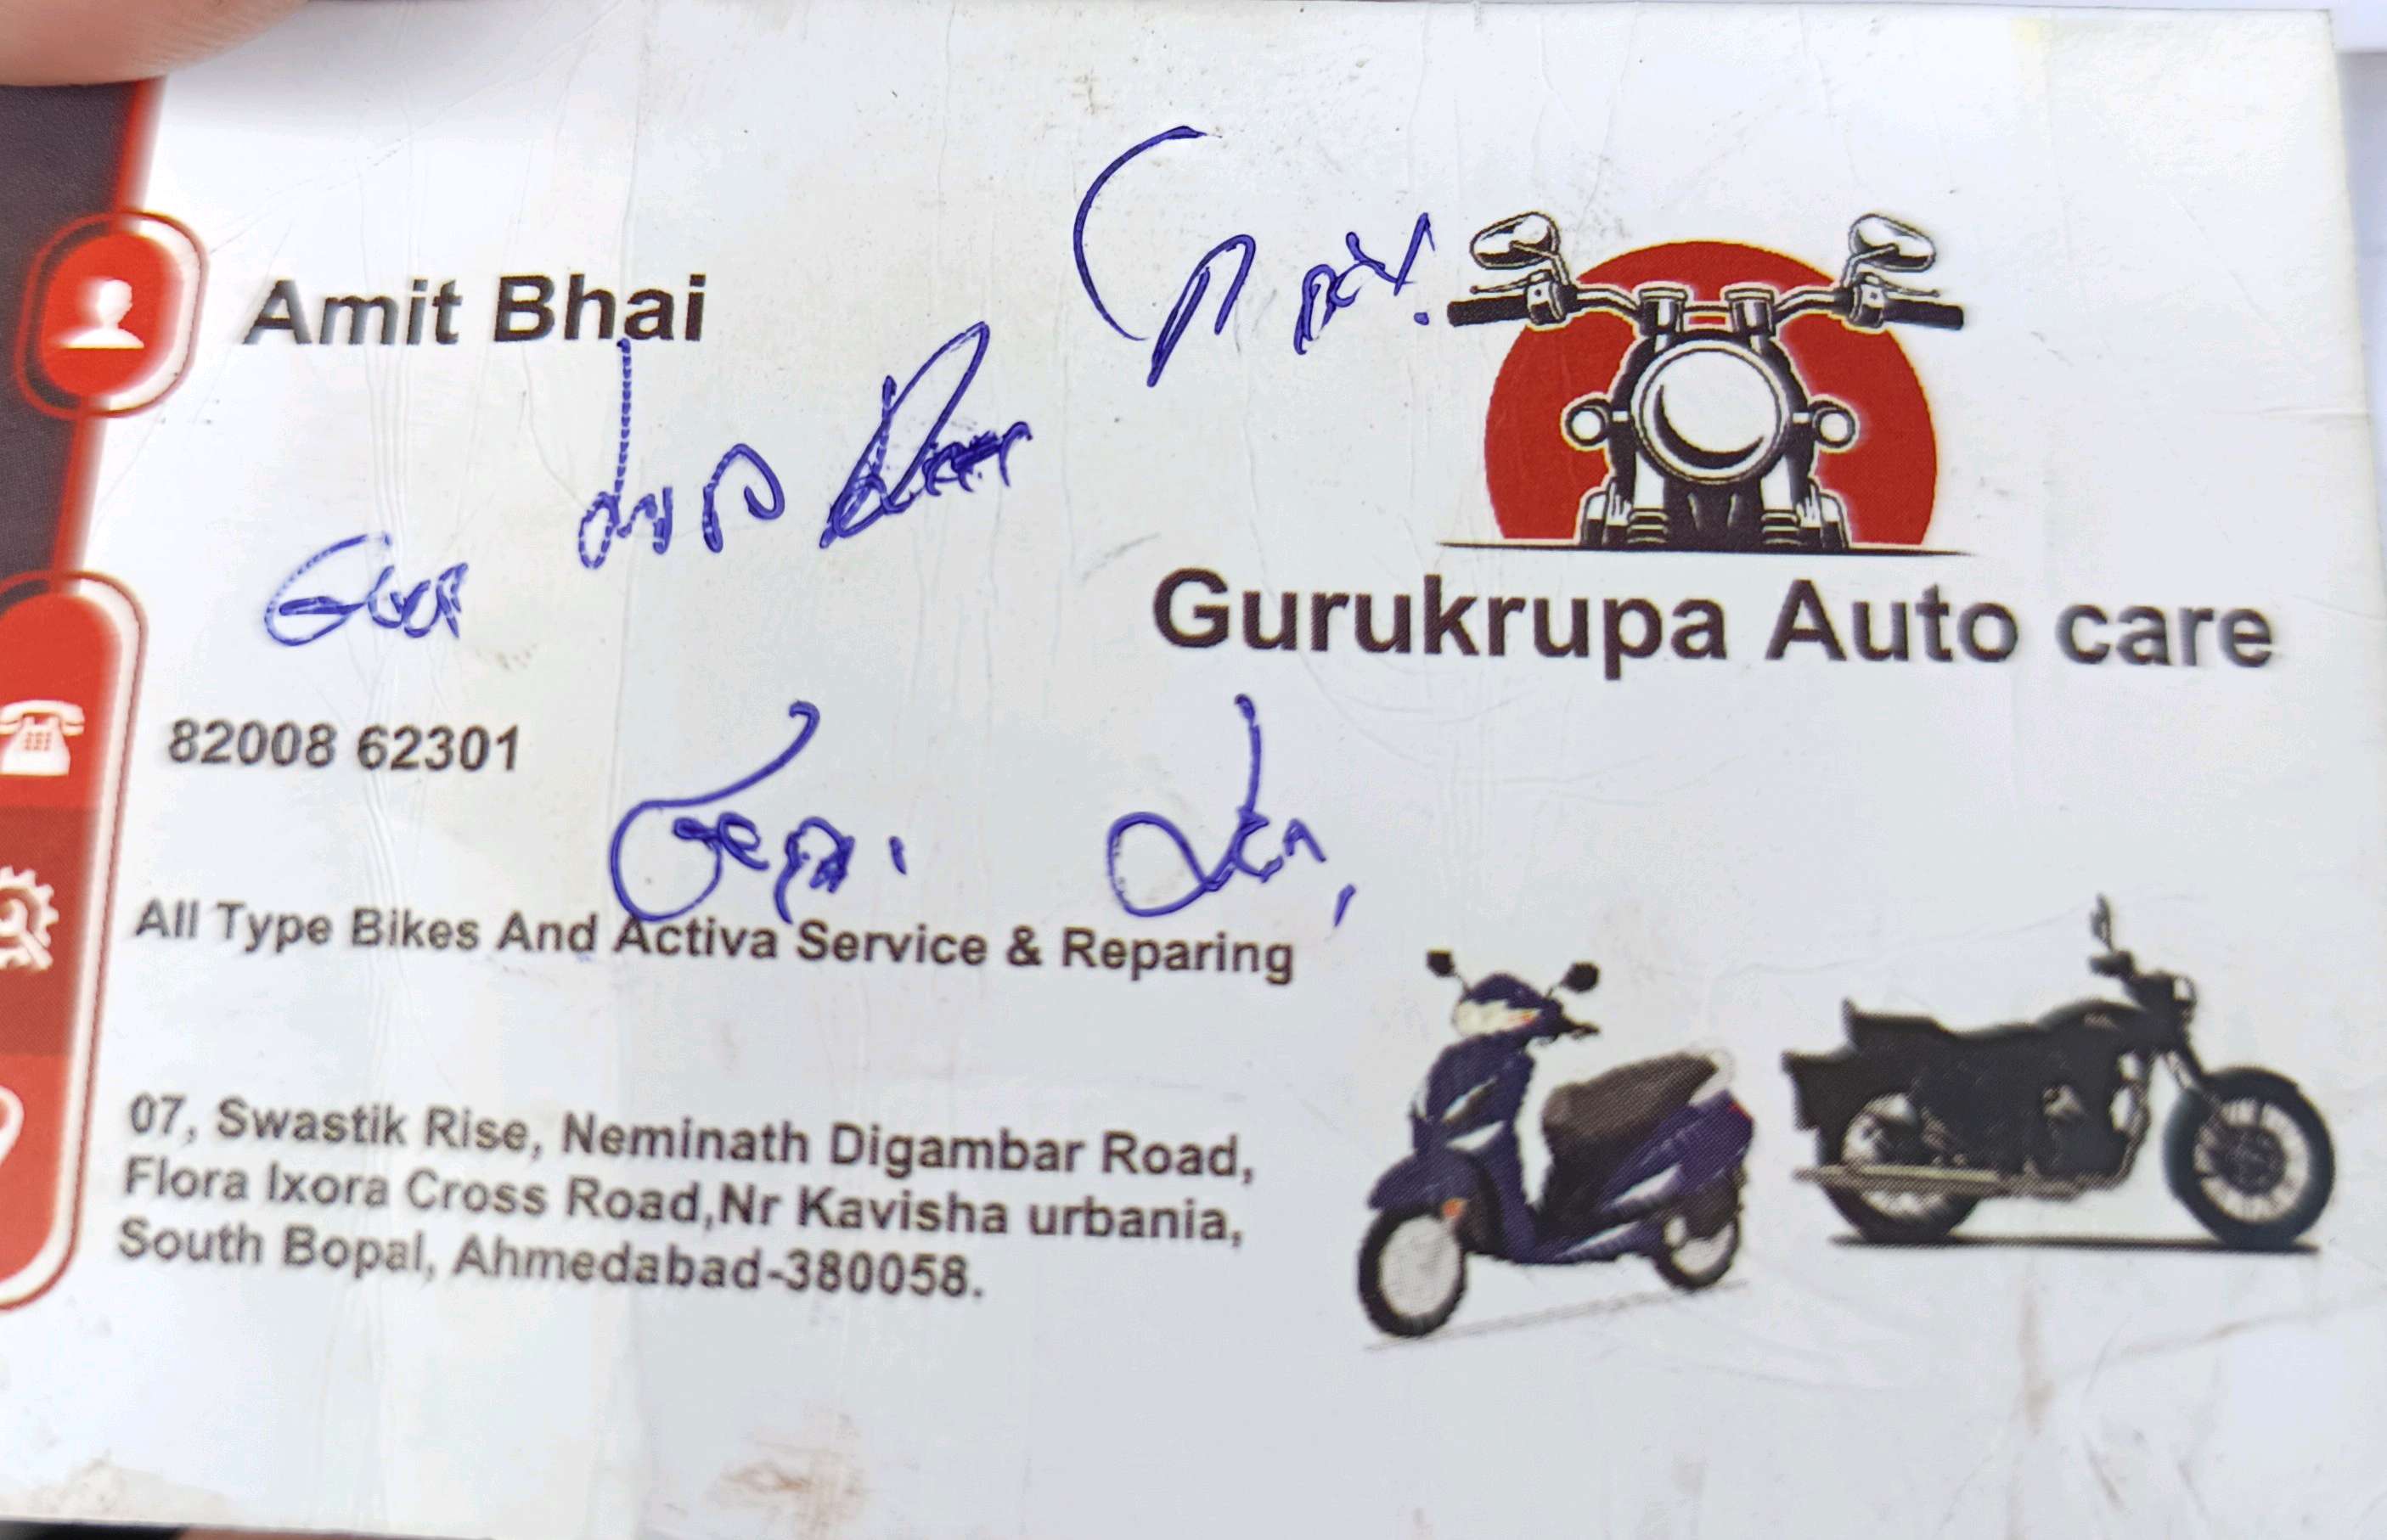 Amit Bhai
Gurukrupa Auto care
82008 62301
All Type Bikes And Activa Service & Reparing
07, Swastik Rise, Neminath Digambar Road,
Flora Ixora Cross Road,Nr Kavisha urbania,
South Bopal, Ahmedabad-380058.